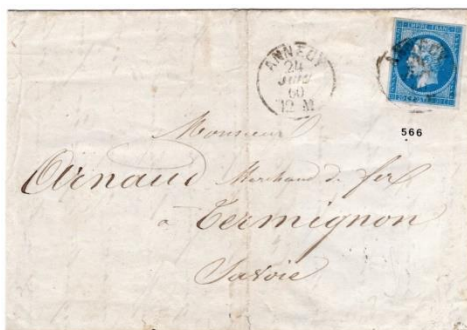 EMPIRE FRANC
ANNECY
24
JUIN
60
12 M
566
Monsieur
Arnaud Marchand de fer
à Termignon
Savoie